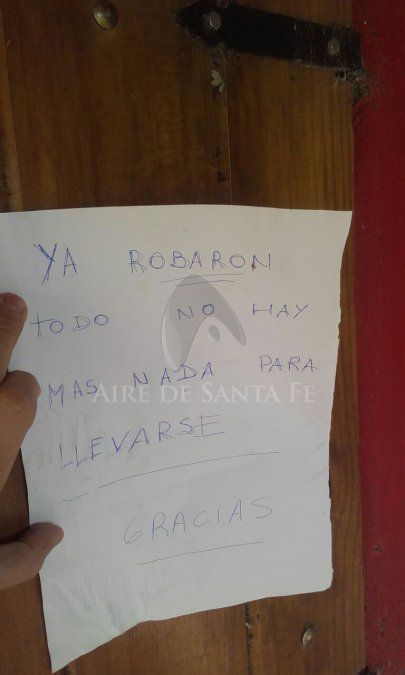 YA ROBARON
TODO NO HAY
MAS NADA PARA
AIRE DE SANTA FE
LLEVARSE
GRACIAS